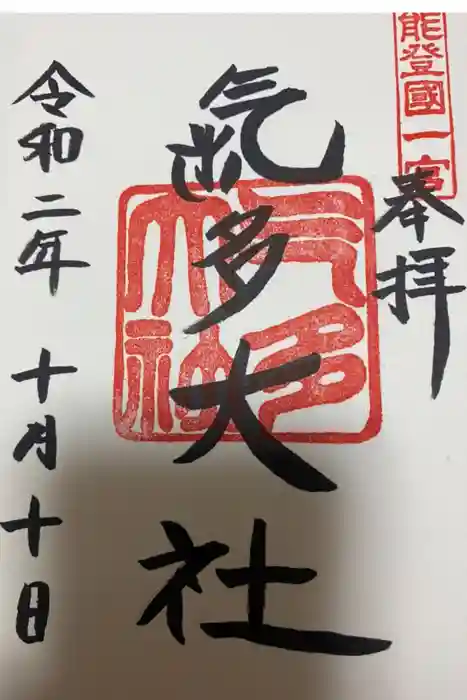 能登國一宮
奉拝
氣多大社
气多大社
令和二年十月十日